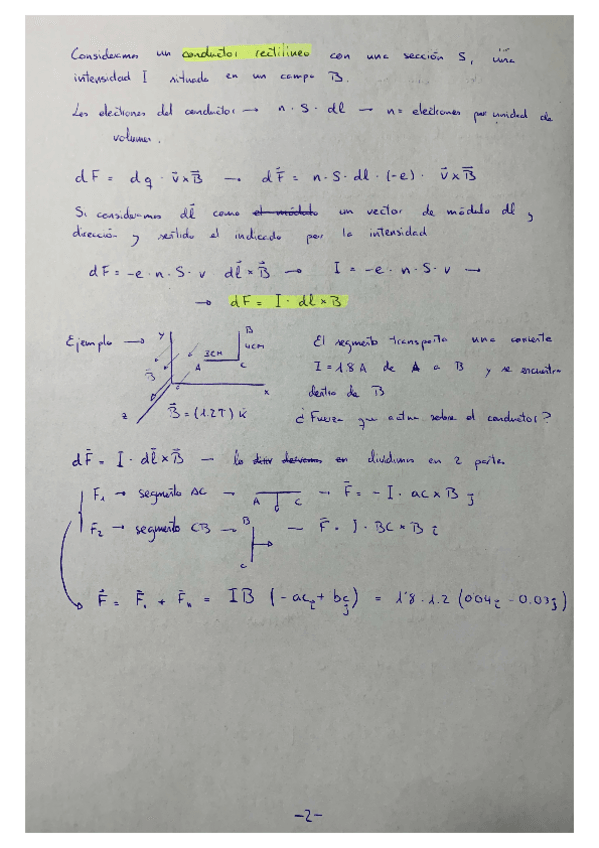 Consideramos un conductor rectilíneo con una sección S, una
intensidad I situado en un campo B.
Los electrones del conductor → n · S · dl → n = electrones por unidad de
volumen.
dF = dq · v⃗ x B⃗ → dF⃗ = n · S · dl · (-e) · v⃗ x B⃗
Si consideramos dl⃗ como el módulo un vector de módulo dl y
dirección y sentido el indicado por la intensidad
dF = -e · n · S · v dl⃗ x B⃗ → I = -e · n · S · v →
→ dF = I · dl x B
Ejemplo →
Y
B
4cm
3cm
A
C
B⃗
x
z
B⃗ = (1.2T) k
El segmento transporta una corriente
I = 1.8 A de A a B y se encuentra
dentro de B
¿Fuerza que actua sobre el conductor?
dF⃗ = I · dl⃗ x B⃗ → lo dividimos en 2 partes
F₁ → segmento AC → A C → F⃗ = - I · ac x B j
F₂ → segmento CB → B C → F⃗ = I · BC x B i
F⃗ = F⃗₁ + F⃗₂ = IB (-ac i + bc j) = 1'8 · 1.2 (0'04 i - 0.03 j)
-2-